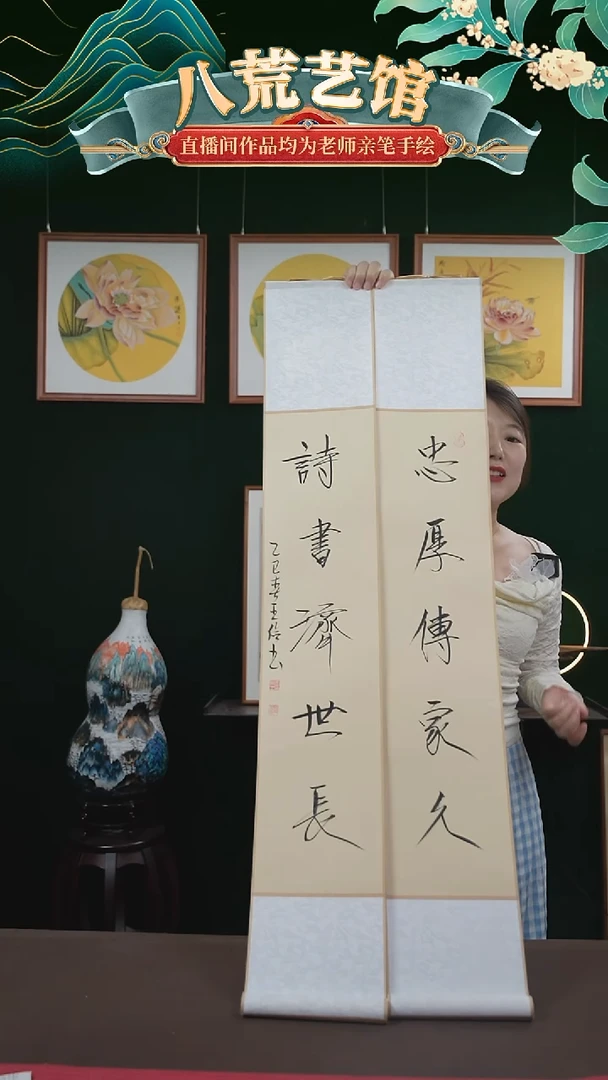 八荒艺馆
直播间作品均为老师亲笔手绘
忠厚傳家久
詩書濟世長